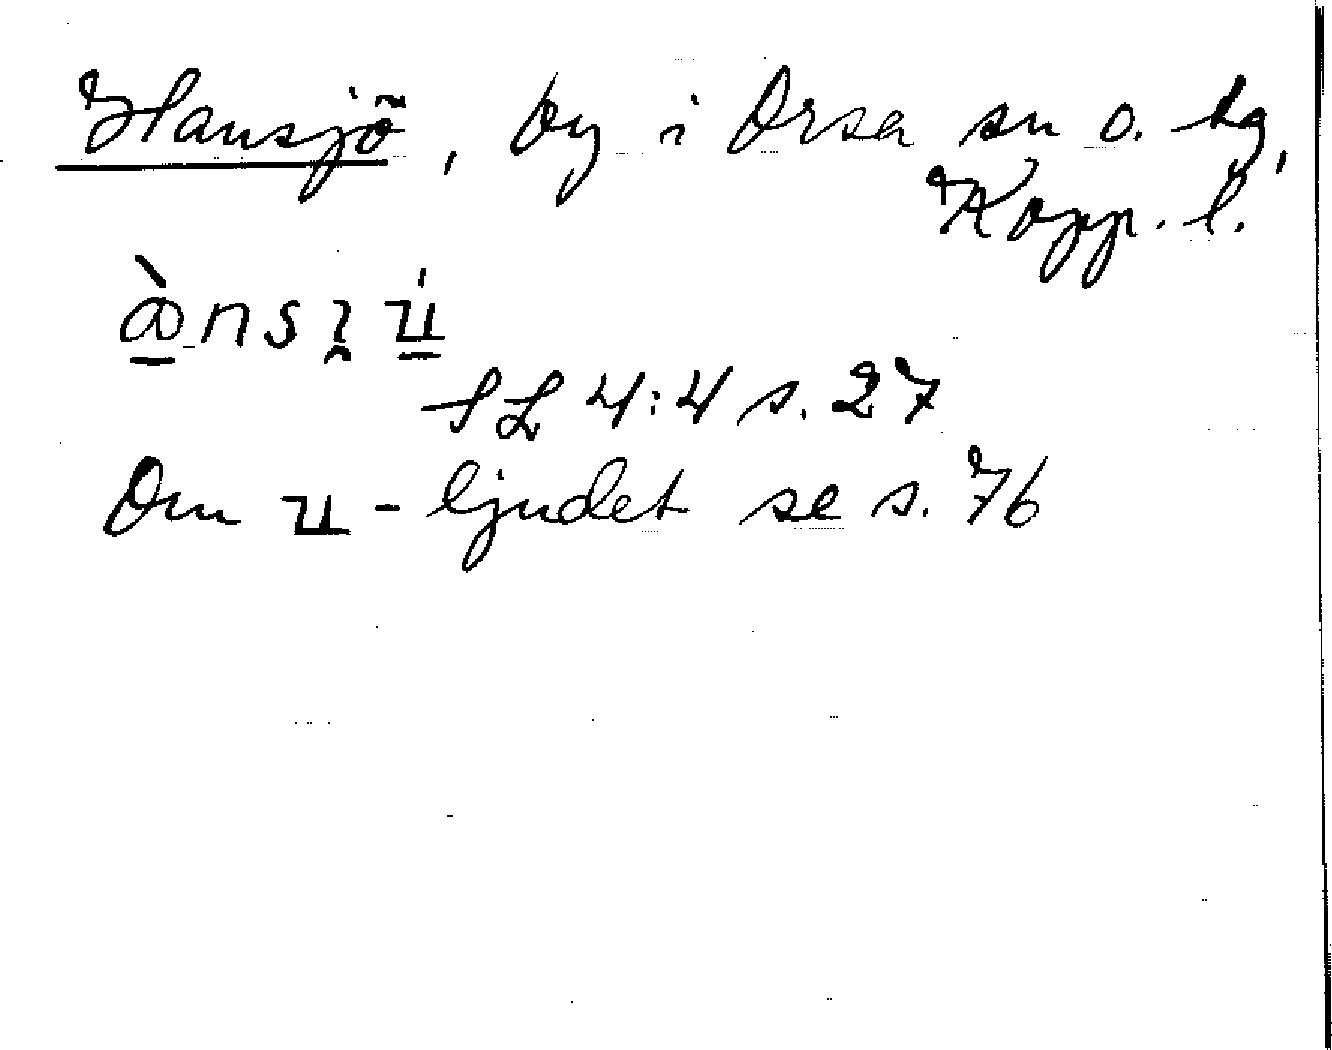 Hansjö, by i Orsa sn o. tg,
Kopp. l.
SL 4:4 s. 27
Om u-ljudet se s. 76